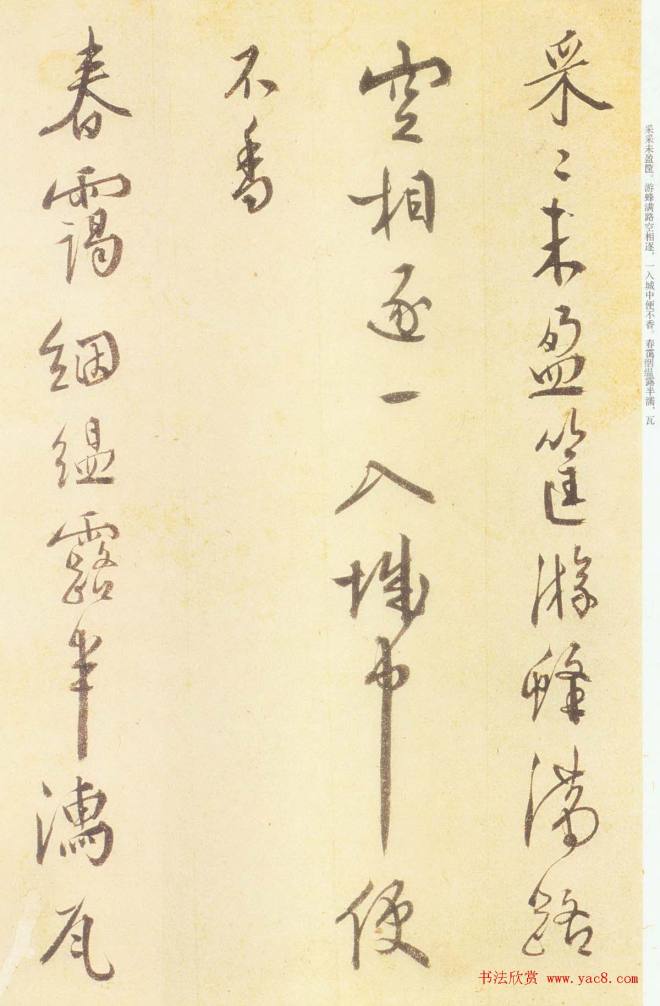 采采未盈筐。游蜂满路空相逐，一入城中便不香。春靄絪縕露半 瓦
采〻未盈筐游蜂滿路
空相逐一入城中便
不香
春靄絪縕露半 瓦
书法欣赏 www.yac8.com